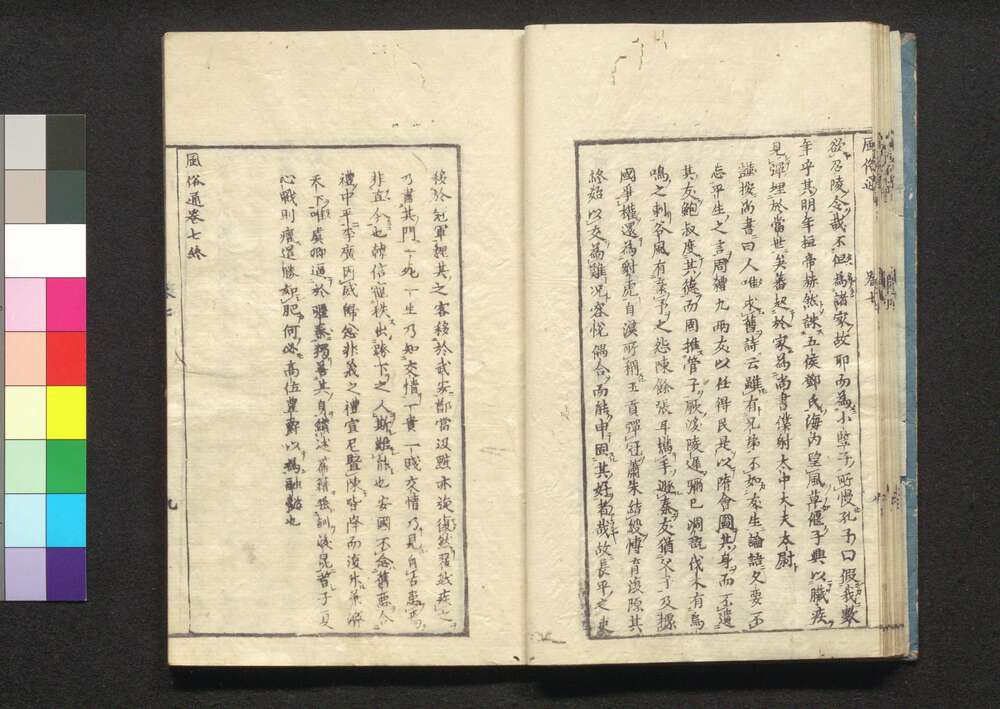 風俗通 卷七
欲召陵令哉不但為諸家故耶而為小豎子所慢孔子曰假我數
年乎其明年桓帝赫然誅五侯鄧氏海內望風草偃子輿以臟疾
見彈埋於當世矣蕃起於家為尚書僕射太中大夫太尉
謹按尚書曰人唯求舊詩云雖有兄弟不如友生論語久要不
忘平生之言周禮九兩友以任得民是以隋會圖其身而不遺
其友鮑叔度其德而固推管子厥後陵遲彌已凋玩伐木有鳥
鳴之刺谷風有棄予之怨陳餘張耳攜手遯秦友猶父子及據
國爭權還為豺虎自漢所稱王貢彈冠蕭朱結綬博育後隙其
終始以交為難況容悅偶合而能申固其好者哉故長平之吏
移於冠軍魏其之客移於武安鄭當汲黯亦旋復然翟公疾之
乃書其門一死一生乃知交情一貴一賤交情乃見自古患焉
非直今也韓信寵秩出跨下之人斯難能也安國不念舊惡合
禮中平李廣因威歸忿非義之禮宣尼暨陳皆降而復升兼濟
天下唯虞卿逼於彊秦獨善其身
心戰則癯道勝如肥何必高位豐爵以為融懿也
風俗通卷七終
卷七
九